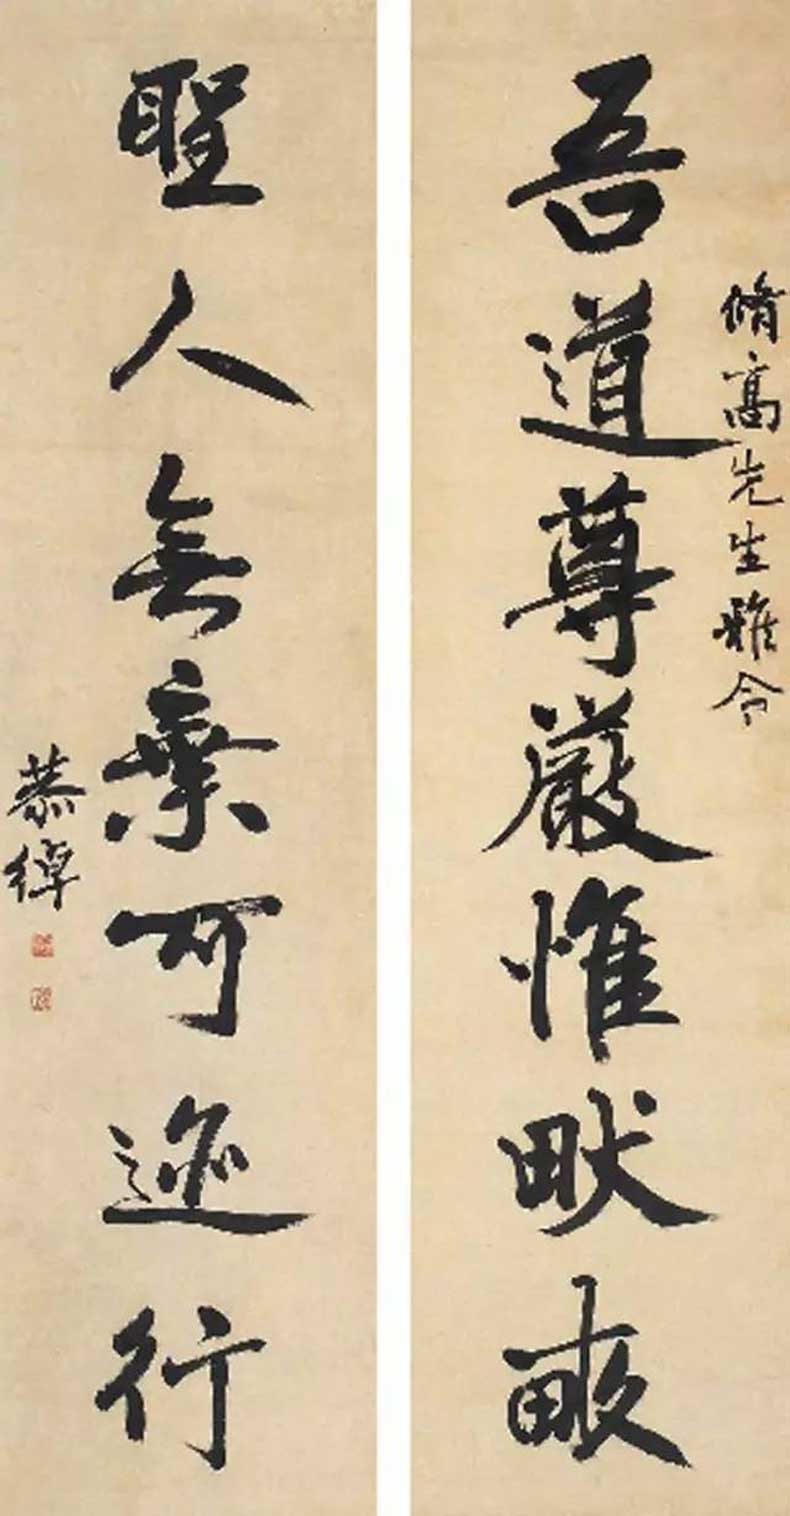 脩高先生雅令
吾道尊嚴惟畎畝
聖人無棄可迹行
恭綽